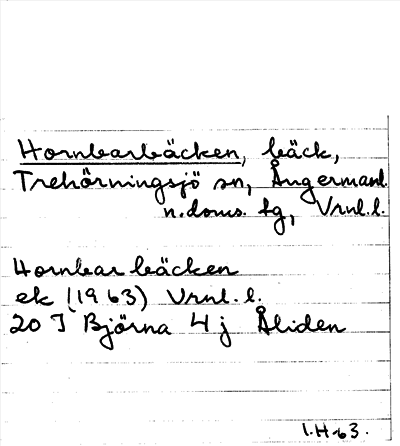 Hornbarbäcken, bäck,
Trehörningsjö sn, Ångermanl.
n. doms. tg, Vrnl. l.
Hornbarbäcken
ek (1963) Vrnl. l.
20 I Björna 4 j Åliden
I.H-63.